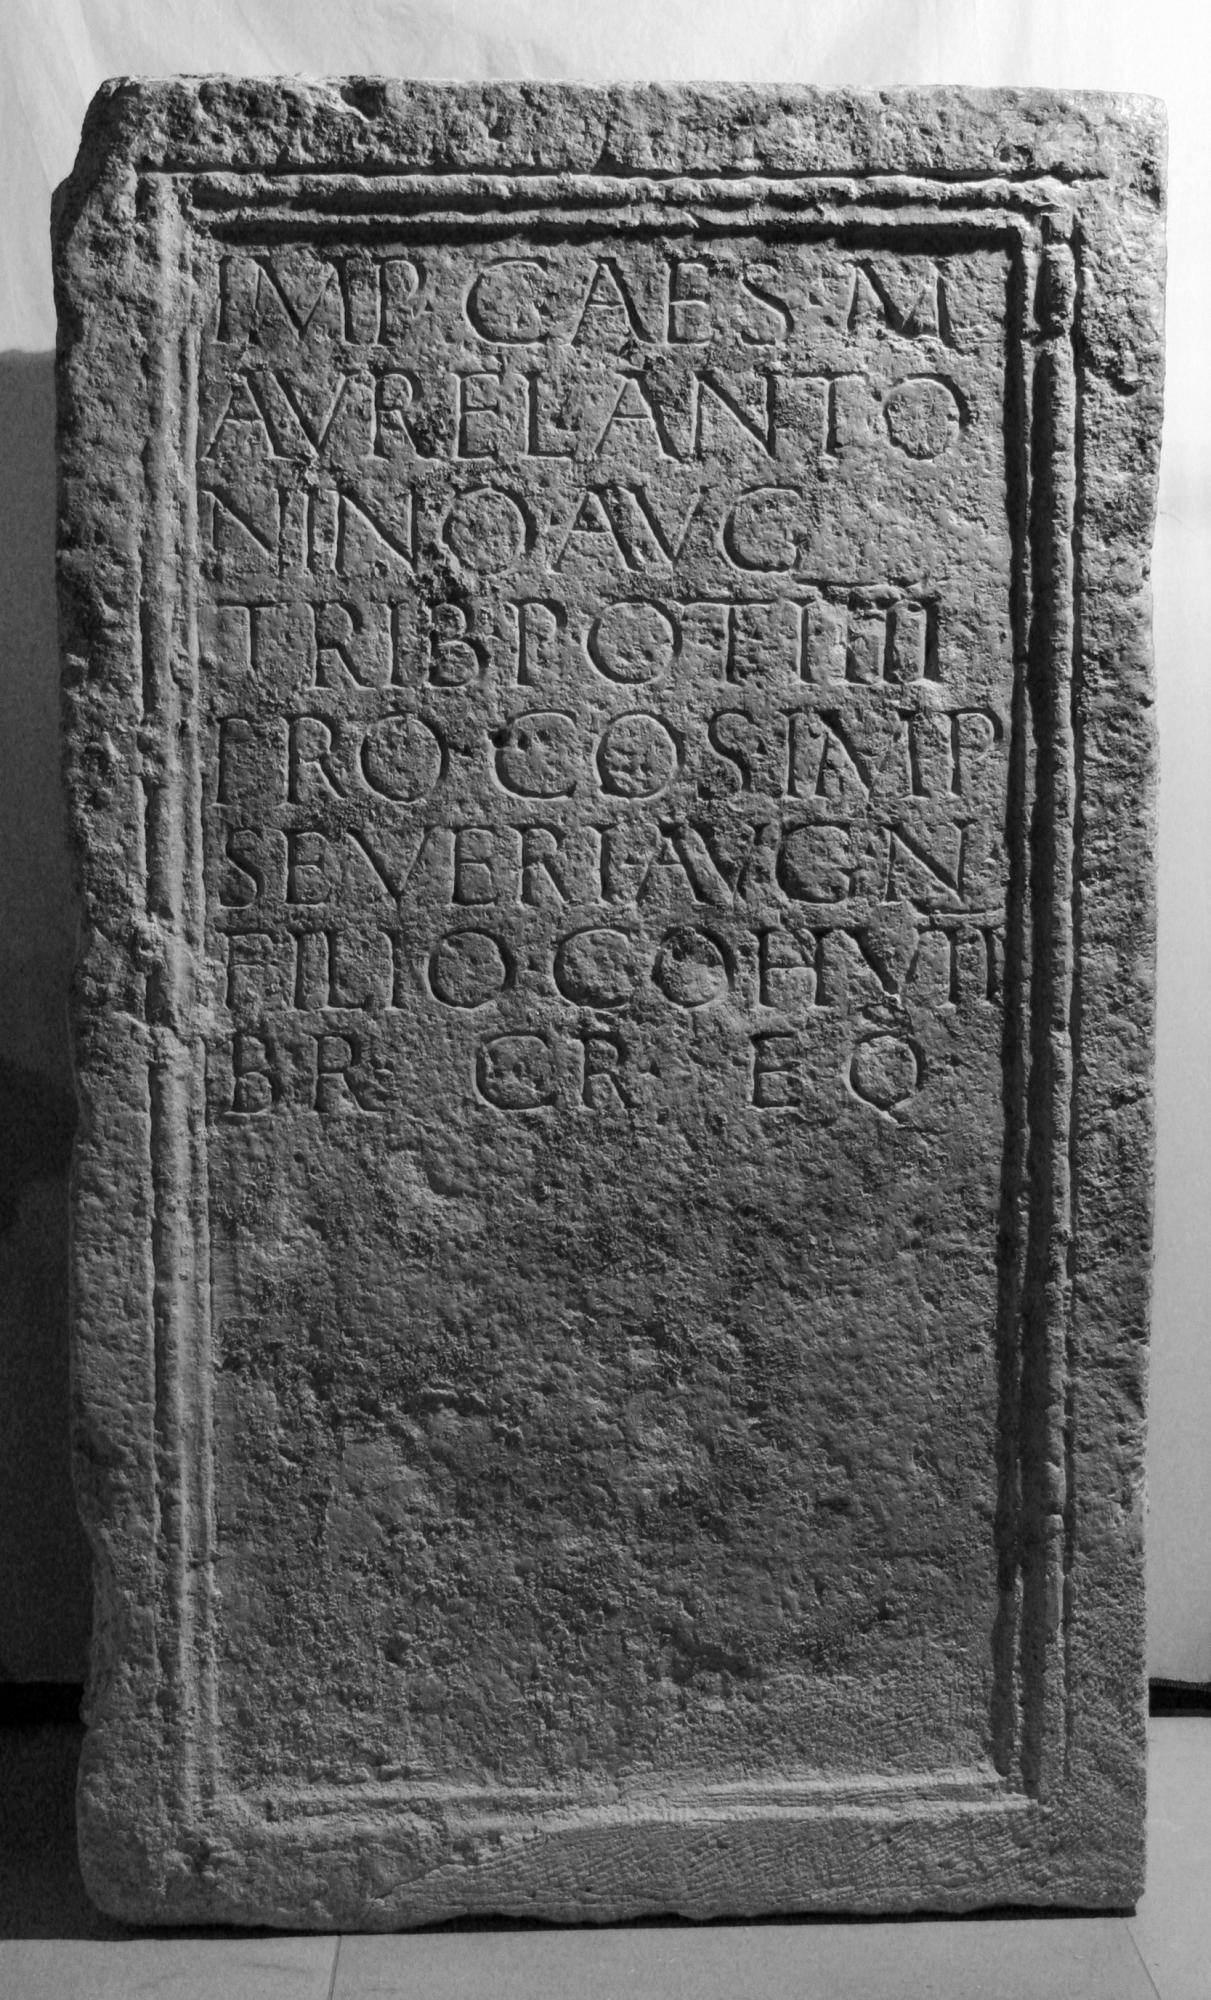 IMP·CAES·M
AVRELANTO
NINOAVG
TRIB·POTIIII
PRO COSIMP
SEVERI·AVGN
FILIO·COHVII
BR· CR· EQ